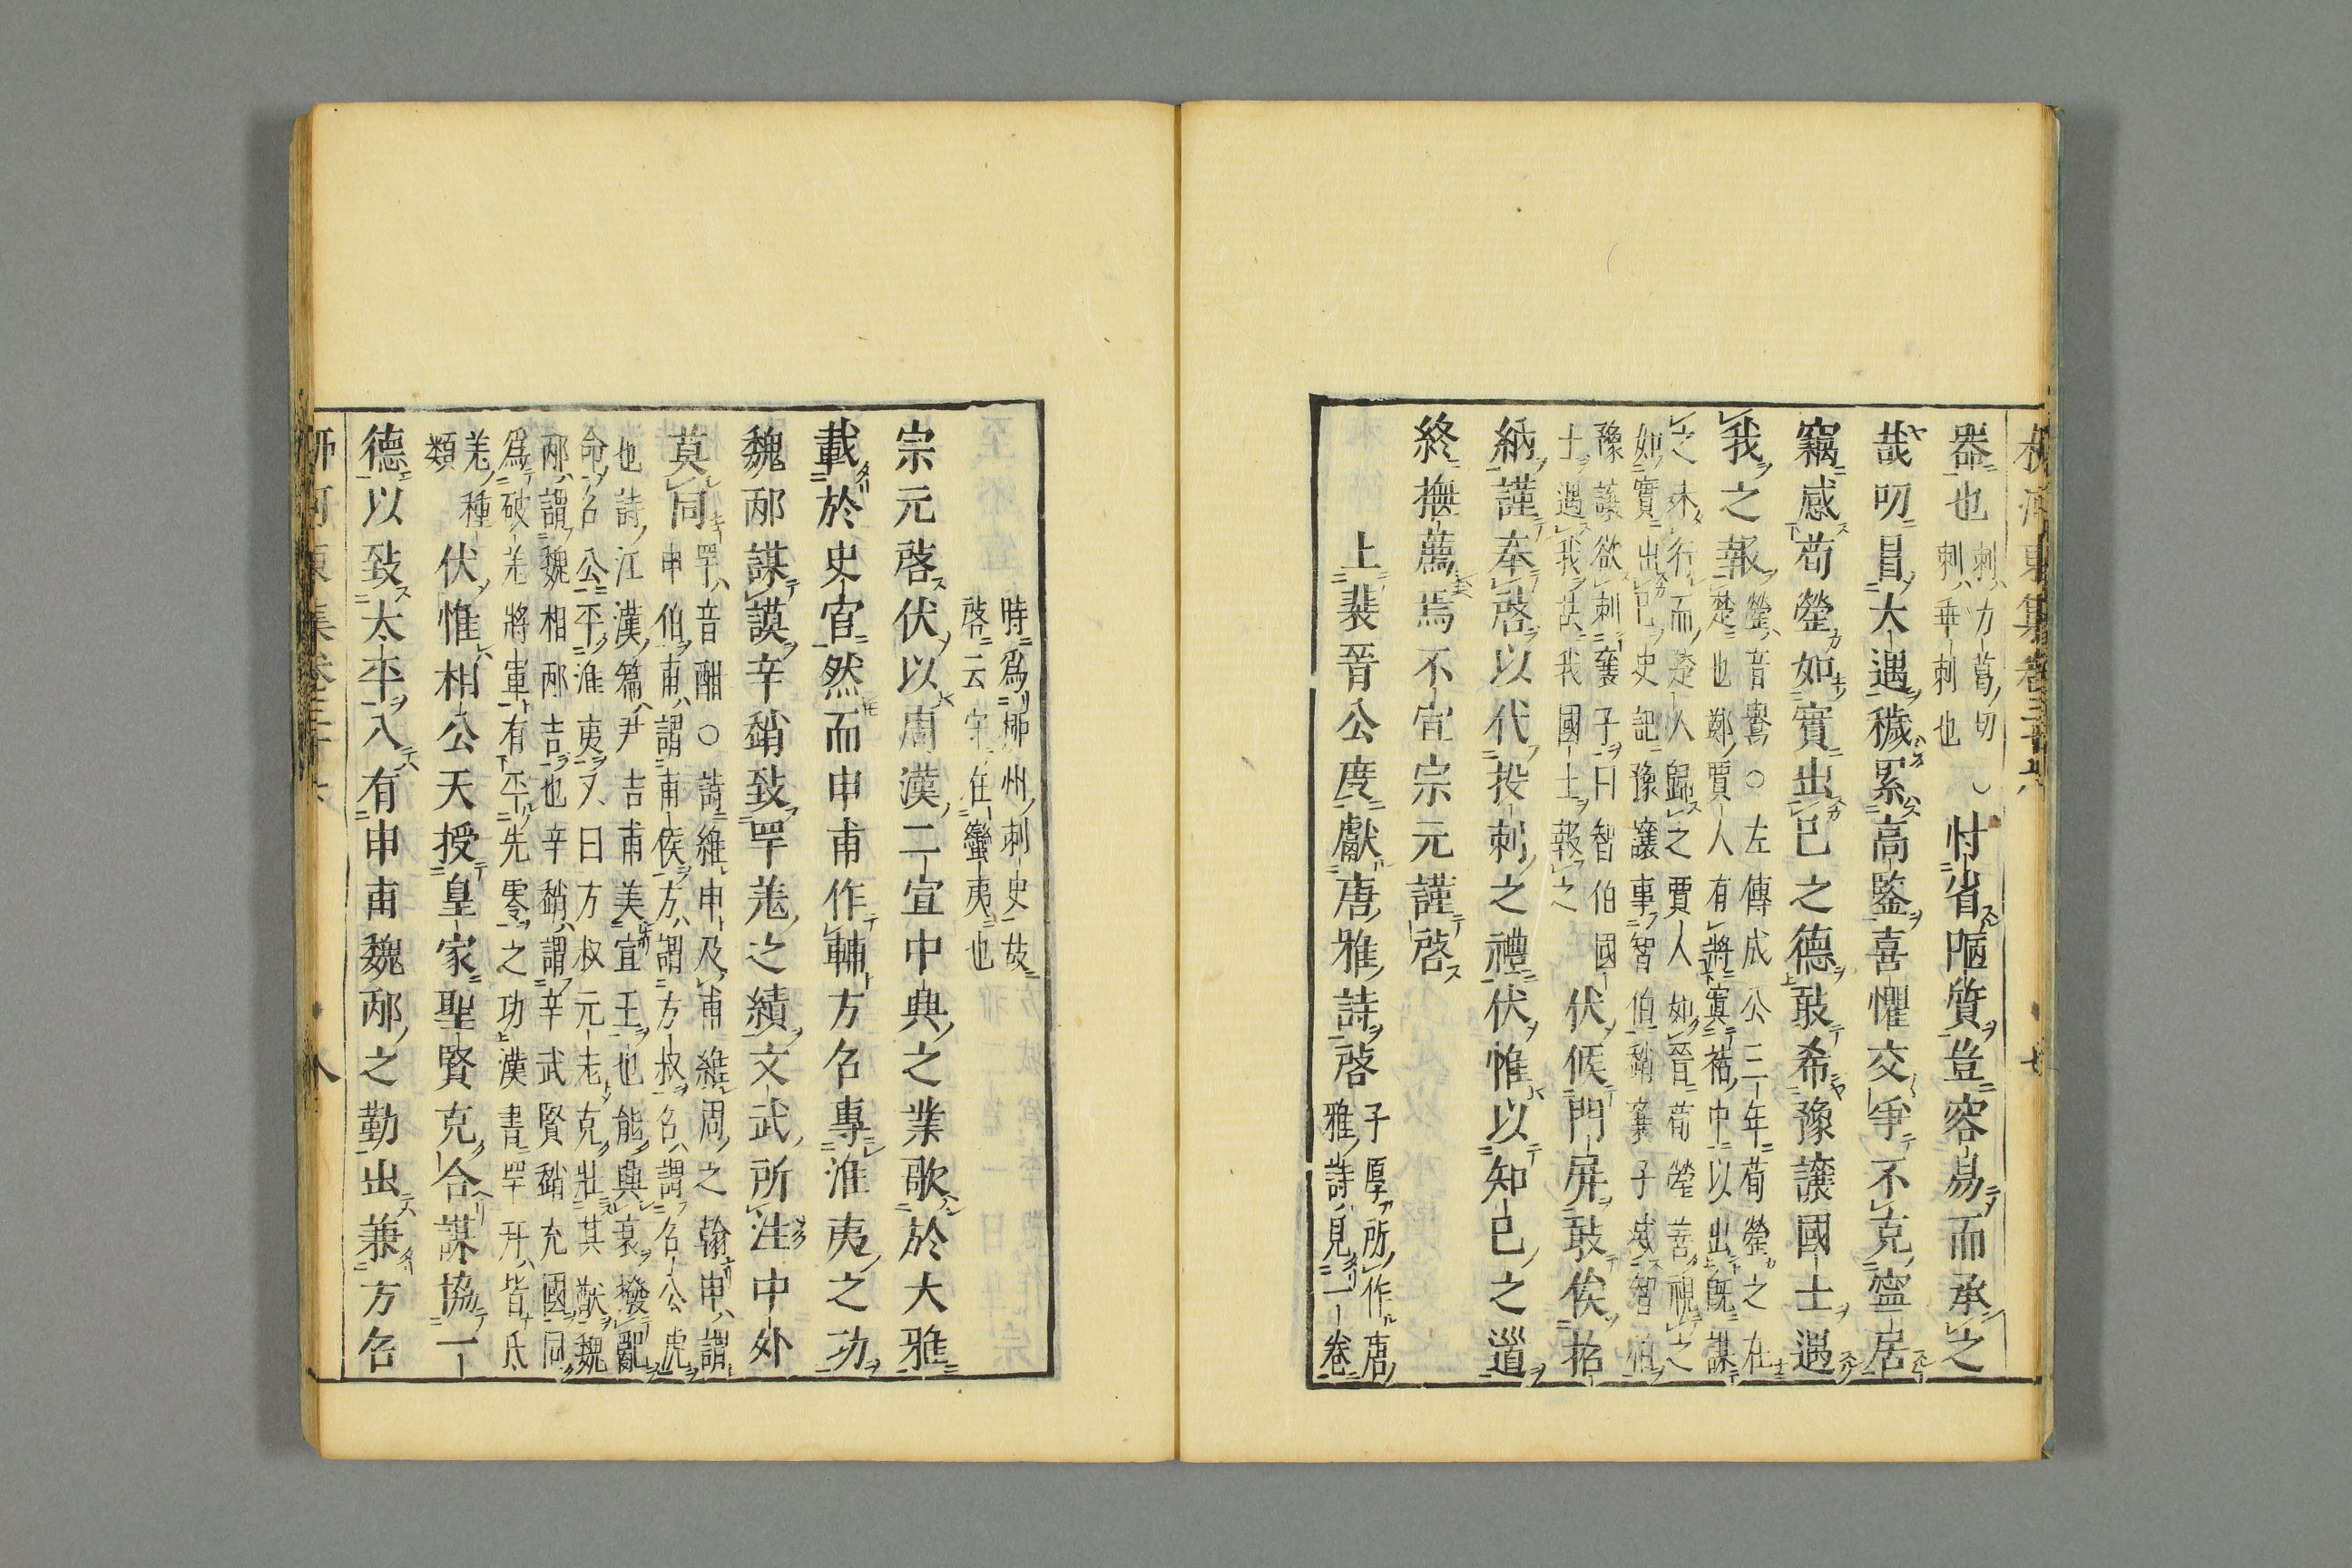 器也刺力葛切刺乖刺也○忖省陋質豈容易而承之
哉叨冒大遇穢累高鑒喜懼交爭不克寧居
竊感荀罃如實出已之德敢希豫讓國士遇
我之報罃音鸎○左傳成公三年荀罃之在
楚也鄭賈人有將寘褚中以出既謀
之未行而楚人歸之賈人如晉荀罃善視之
如實出已史記豫讓事智伯趙襄子滅智伯
豫讓欲刺襄子曰智伯國
士遇我故我國士報之
伏候門屏敢俟招
納謹奉啓以代投刺之禮伏惟以知已之道
終撫薦焉不宣宗元謹啓
上裴晉公度獻唐雅詩啓子厚所作唐
雅詩見一卷
時爲柳州刺史故
啓云守在蠻夷也
宗元啓伏以周漢二宣中興之業歌於大雅
載於史官然而申甫作輔方召專淮夷之功
魏邴謀謨辛趙致罕羌之績文武所注中外
莫同罕音酣○詩維申及甫維周之翰申謂
申伯甫謂甫侯方謂方叔召謂召公虎
也詩江漢篇尹吉甫美宣王也能興衰撥亂
命召公平淮夷又曰方叔元老克壯其猷魏
邴謂魏相邴吉也辛趙謂辛武賢趙充國同
爲破羌將軍有平先零之功漢書罕幵皆氐
羌種
類
伏惟相公天授皇家聖賢克合謀協一
德以致太平入有申甫魏邴之勤出兼方召